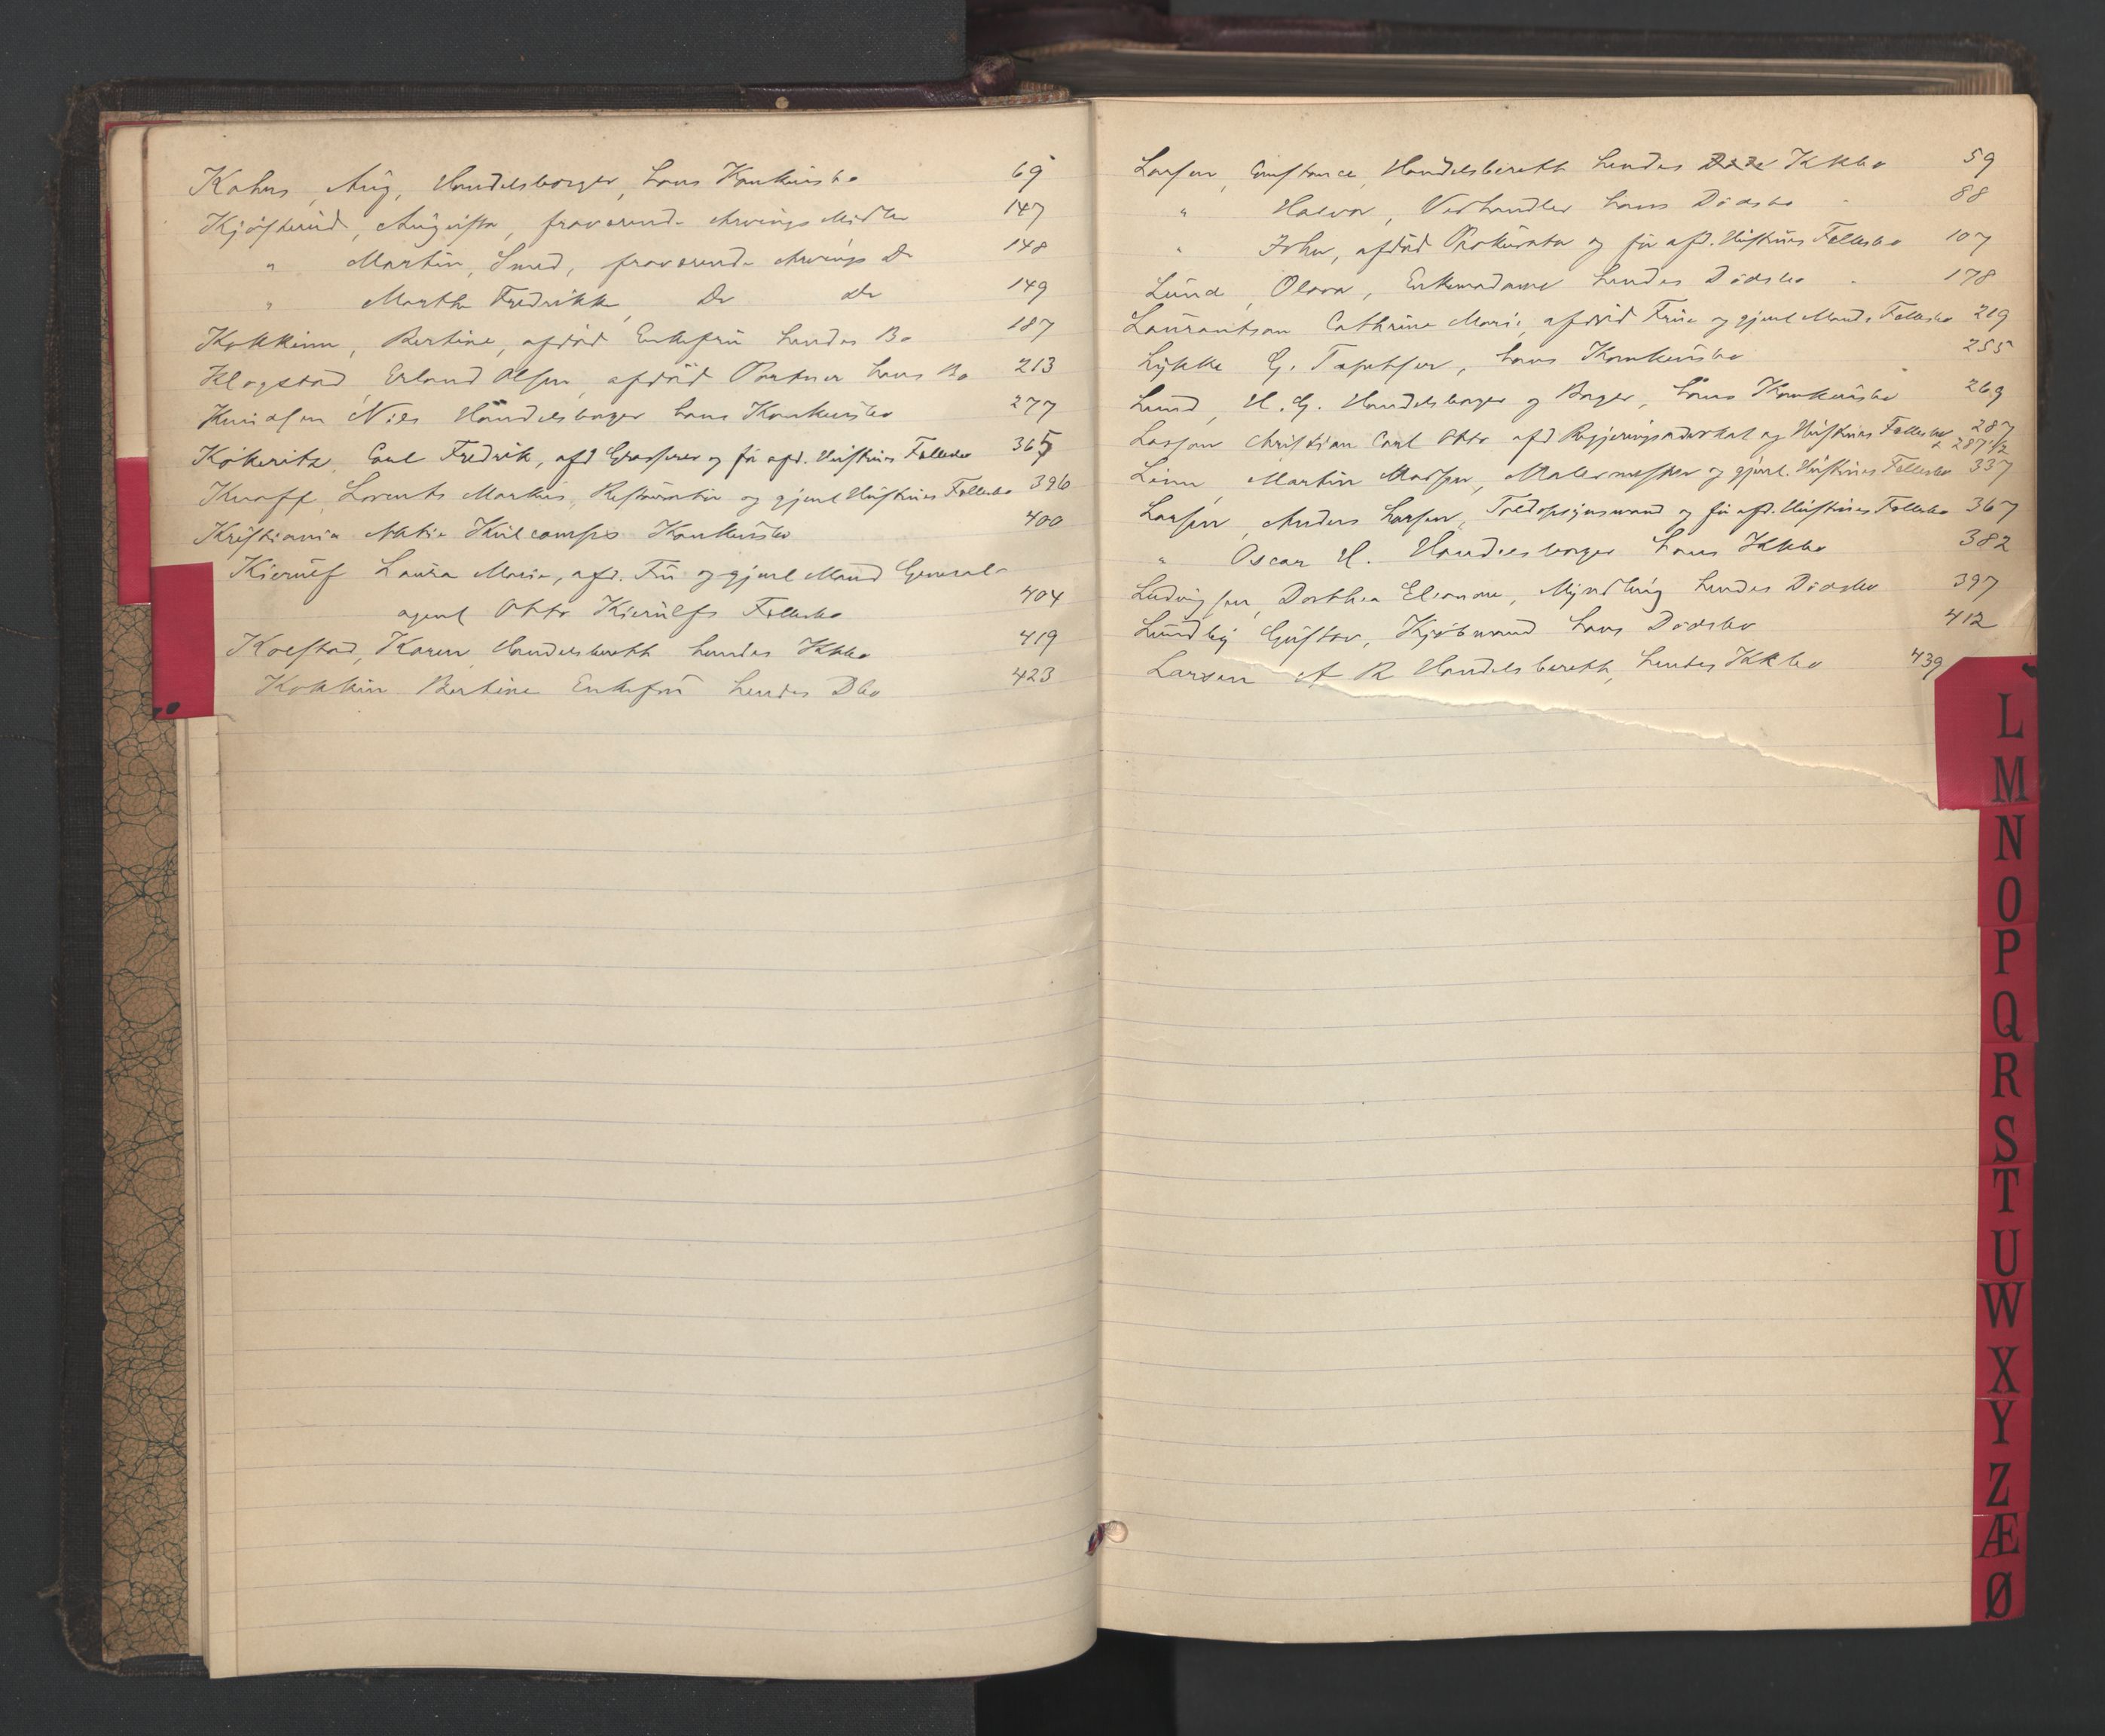 Kahrs, Aug, Handelsborger, hans Konkursbo 69
Kjøsterud, Augusta, fraværende Arvings Midler 147
" Martin, Smed, fraværende Arvings Do 148
" Marthe Fredrikke, Do Do 149
Kokkinn, Bertine, afdød Enkefru hendes Bo 187
Klogstad, Erland Olsen, afdød Portner hans Bo 213
Knudsen, Nils Handelsborger hans Konkursbo 277
Kökeritz, Carl Fredrik, afd Grosserer og før afd. Hustrues Fællesbo 365
Knoff, Lorents Markus, Restauratør og gjenl Hustrues Fællesbo 396
Kristiania Aktie Kulcomps Konkursbo 400
Kierulf Laura Marie, afd. Fru og gjenl Mand General-
agent Otto Kierulfs Fællesbo 404
Kolstad, Karen Handelsberett hendes Kkbo 419
Kokkin Bertine Enkefru hendes Dbo 423
Larsen, Constance, Handelsberett hendes Kkbo 59
" Halvor, Vedhandler hans Dødsbo 88
" John, afdød Prokurator og før afd. Hustrues Fællesbo 107
Lund, Olava, Enkemadame hendes Dødsbo 178
Laurantson Cathrine Marie, afdød Frue og gjenl Mands Fællesbo 219
Lykke G. Tapetser, hans Konkursbo 255
Lund, H. G. Handelsborger og Bager, hans Konkursbo 269
Lasson Christian Carl Otto afd Regjeringsadvokat og Hustrues Fællesbo 287 & 287 1/2
Linn, Martin Madsen, Malermester og gjenl. Hustrues Fællesbo 337
Larsen, Anders Larsen, Toldopsynsmand og før afd. Hustrues Fællesbo 367
" Oscar H. Handelsborger hans Kkbo 382
Ludvigsen, Dorthea Eleonore, Myndling hendes Dødsbo 397
Lundby Gustav, Kjøbmand hans Dødsbo 412
Larsen A R Handelsberett, hendes Kkbo 439
L
M
N
O
P
Q
R
S
T
U
W
X
Y
Z
Æ
Ø